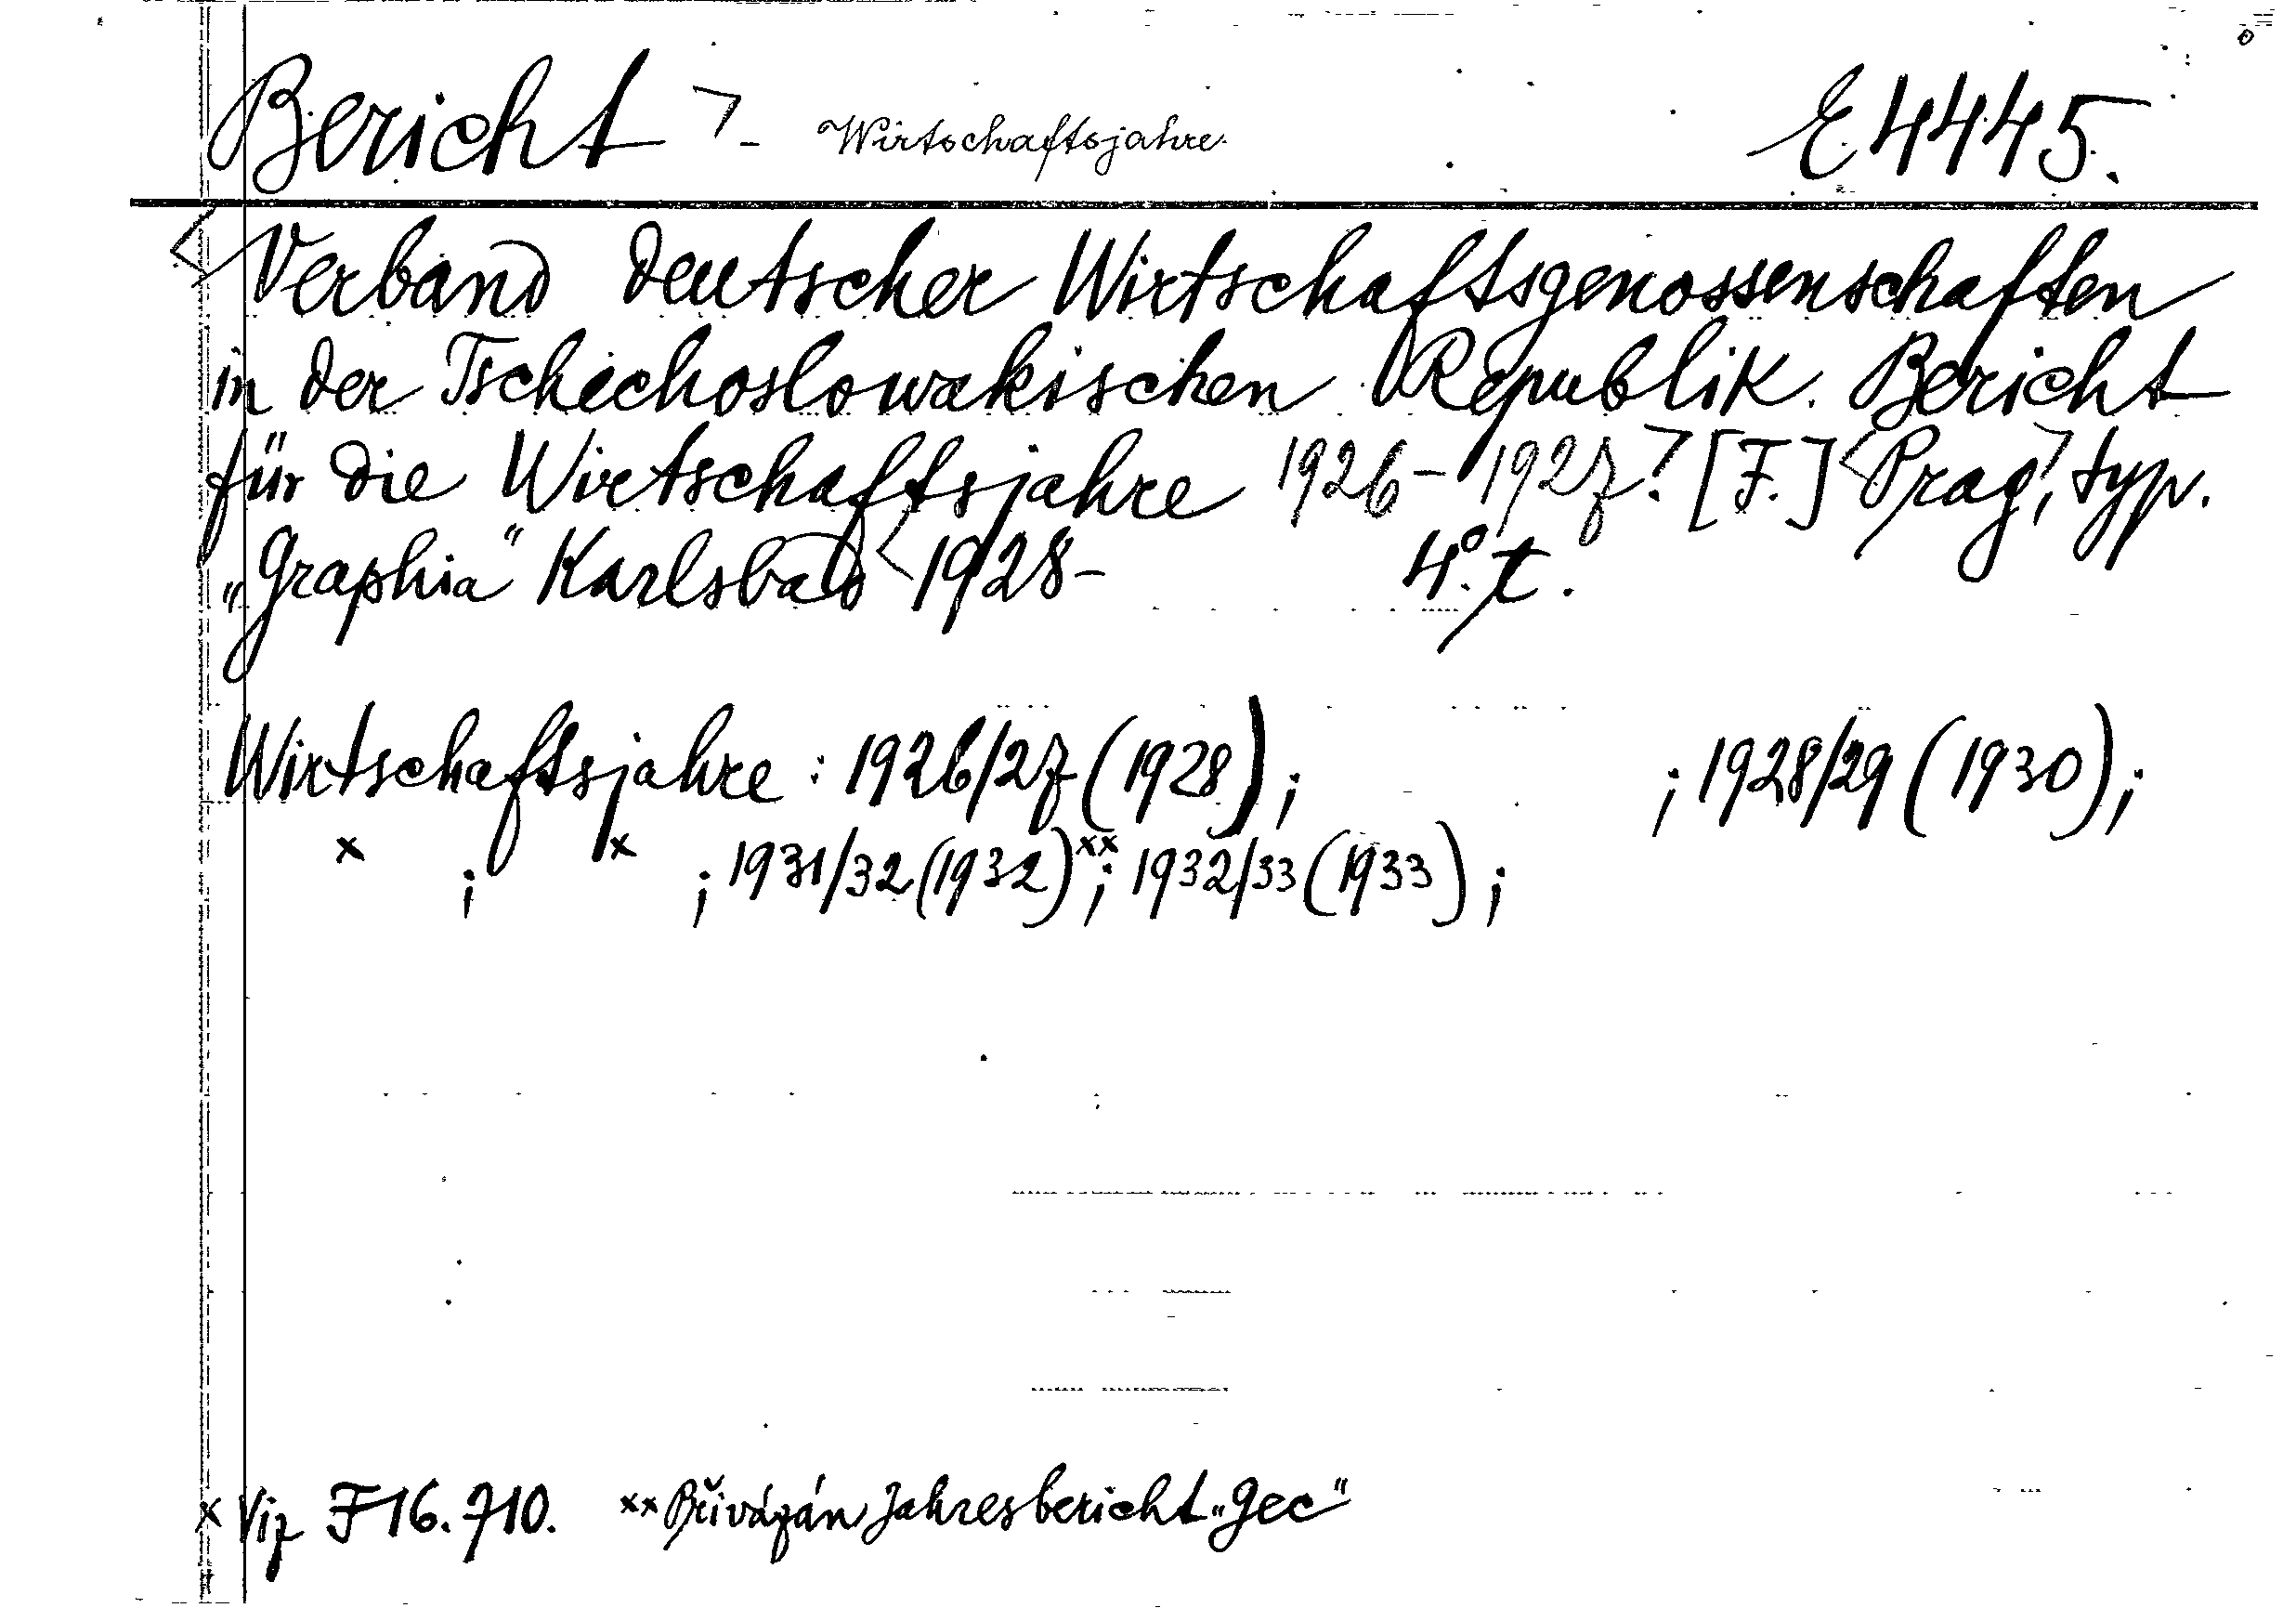 Bericht > - Wirtschaftsjahre. E 4445.
<Verband deutscher Wirtschaftsgenossenschaften
in der Tschechoslowakischen Republik. Bericht
für die Wirtschaftsjahre 1926-1927.> [F.] <Prag>, typ.
„Graphia“ Karlsbad < 1928- 4°. t.
Wirtschaftsjahre : 1926/27 (1928) ; ; 1928/29 (1930) ;
x ; x ; 1931/32 (1932) xx ; 1932/33 (1933) ;
x Viz F 16.710. xx Přivázán Jahresbericht „Gec“